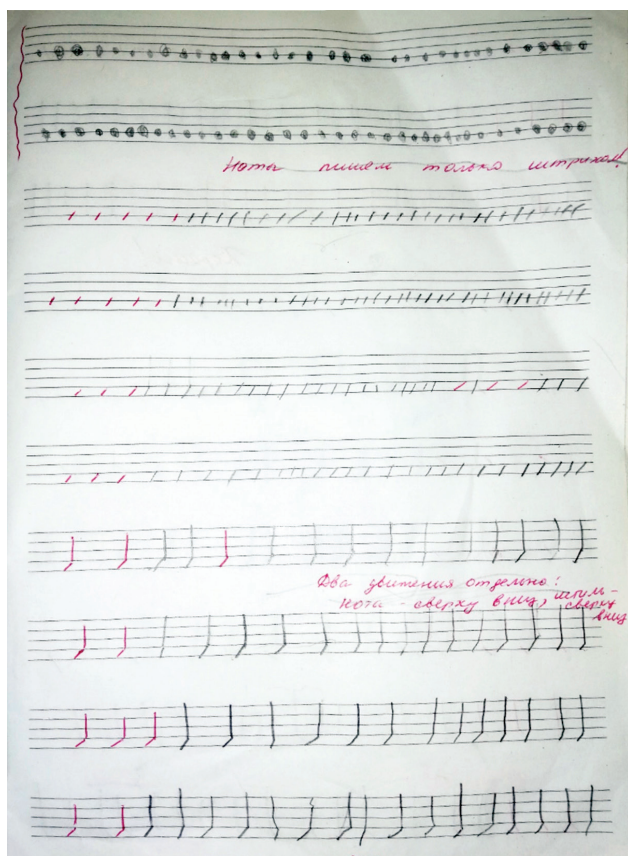 Ноты пишем только штрихом!
Два движения отдельно:
нота - сверху вниз, штиль -
сверху
вниз